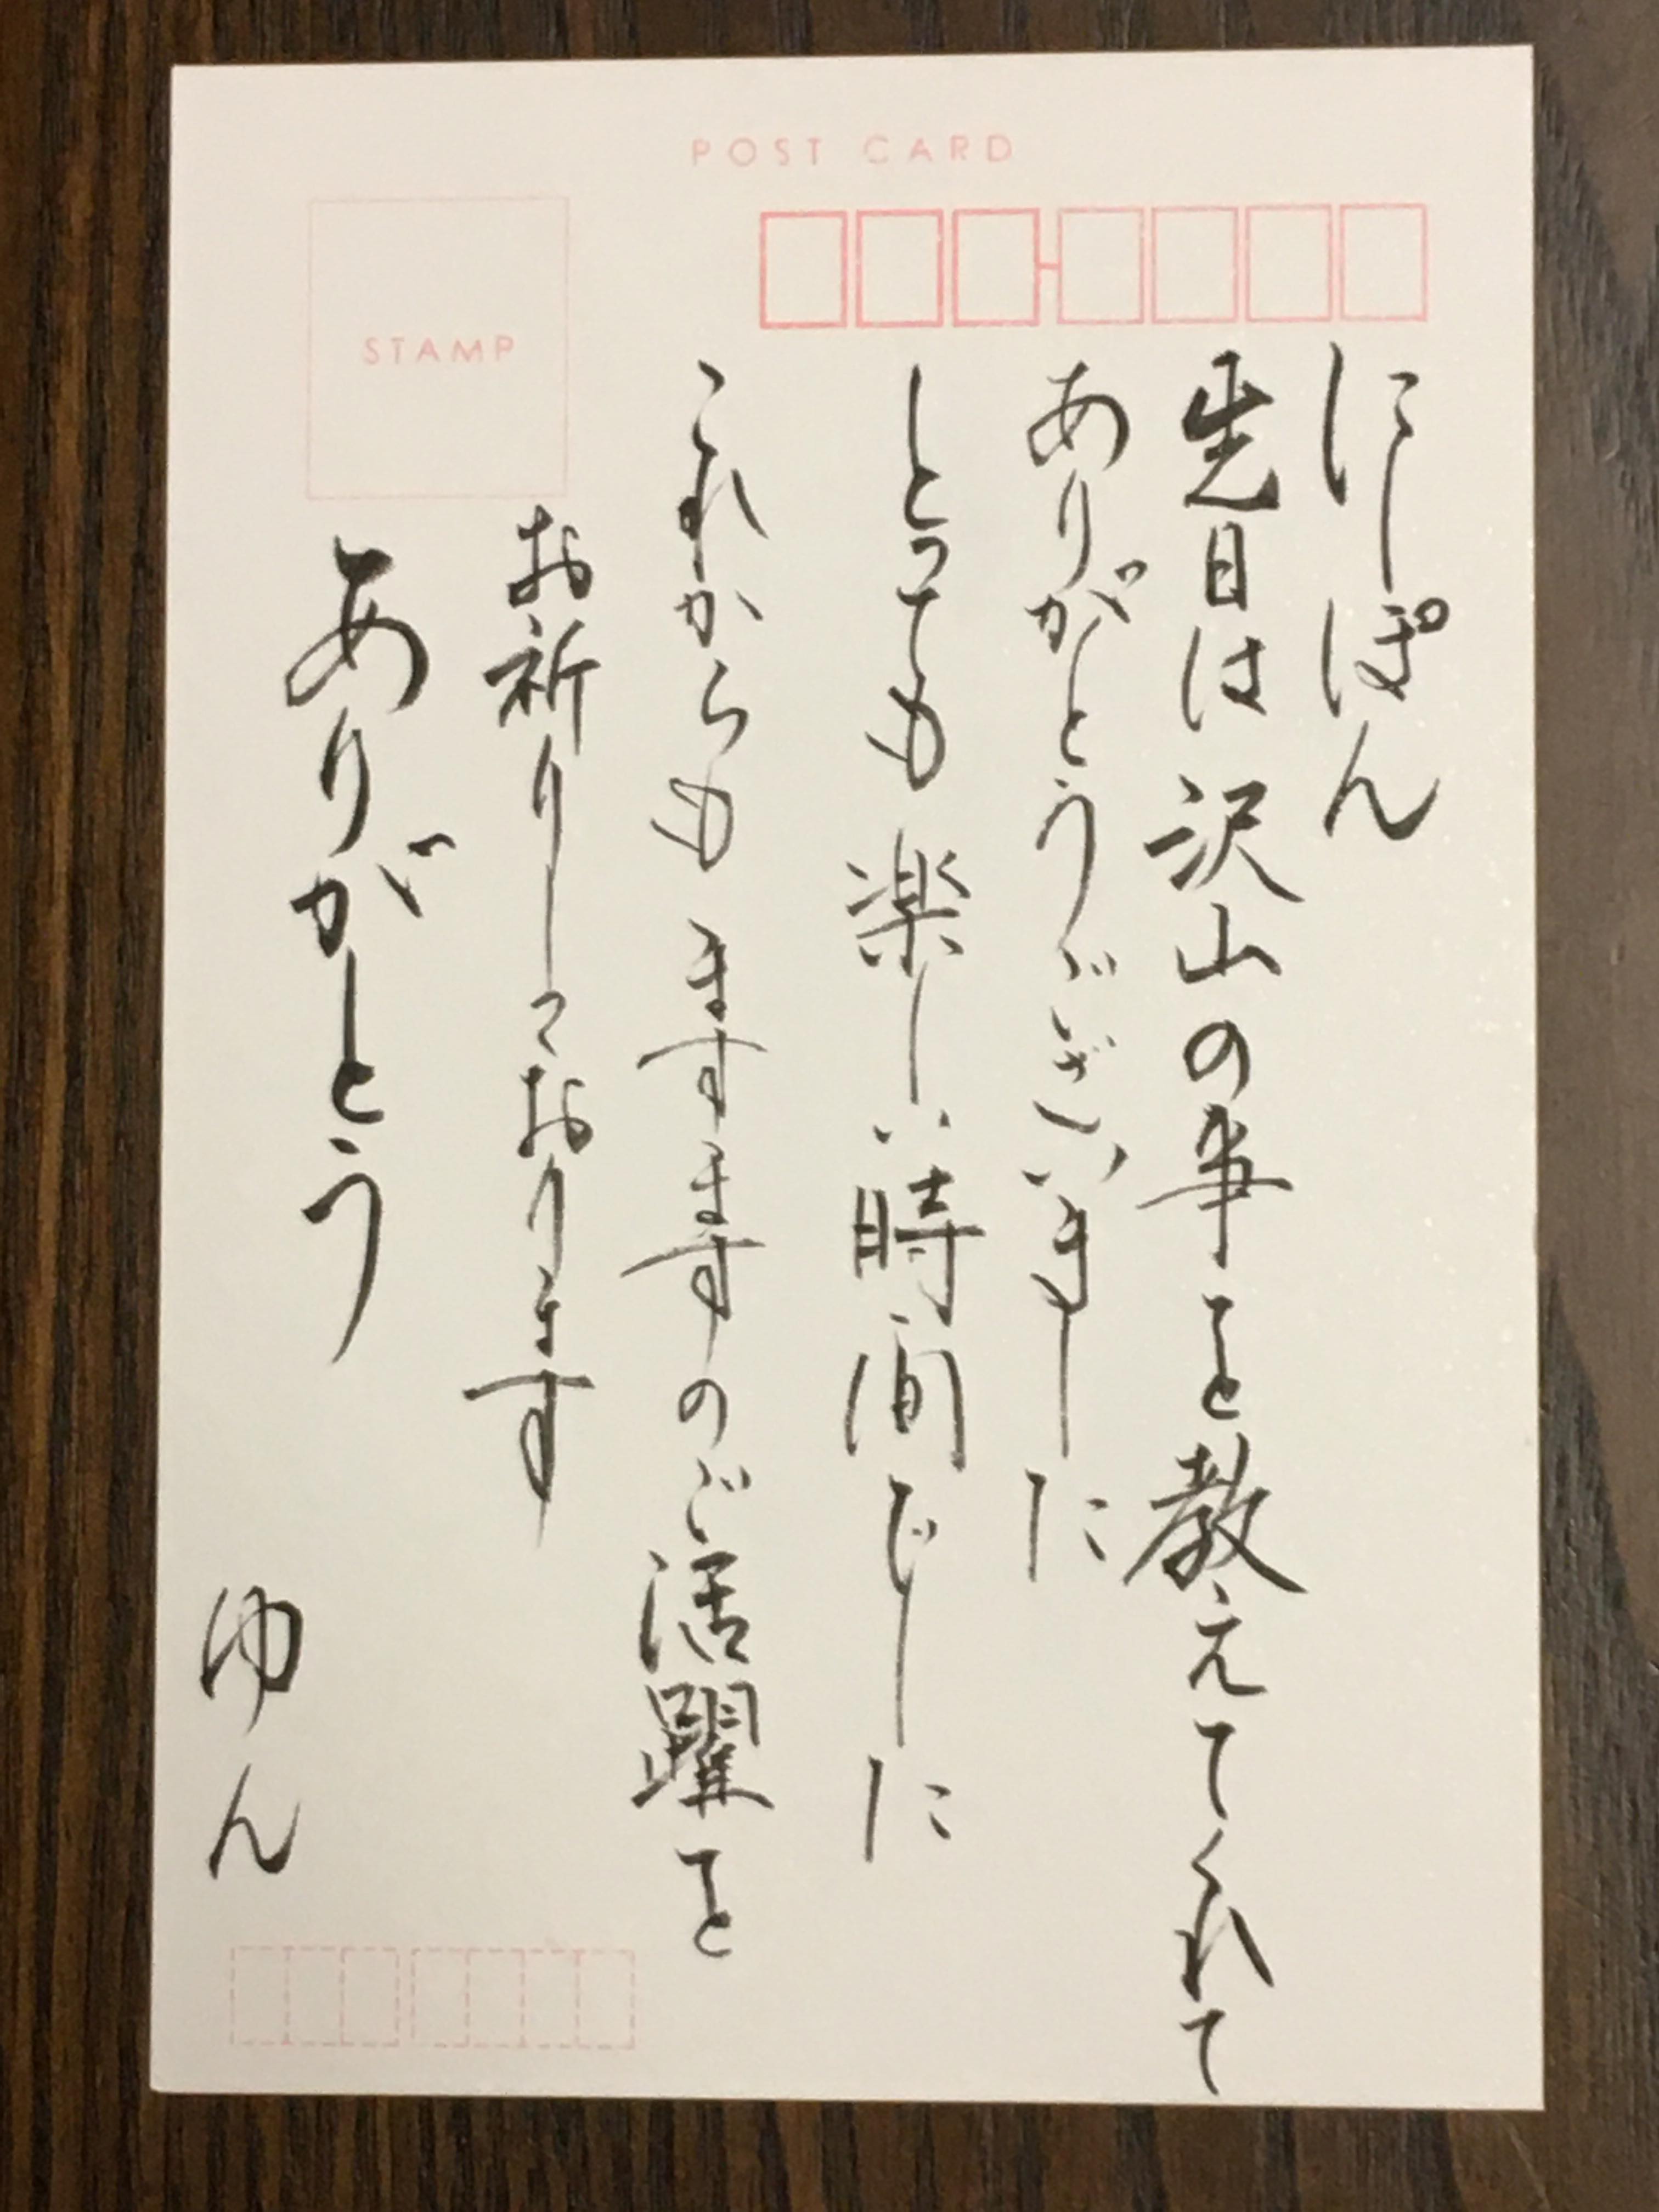 POST CARD
STAMP
にしぽん
先日は沢山の事を教えてくれて
ありがとうございました
とっても楽しい時間でした
これからもますますのご活躍を
お祈りしております
ありがとう
ゆん